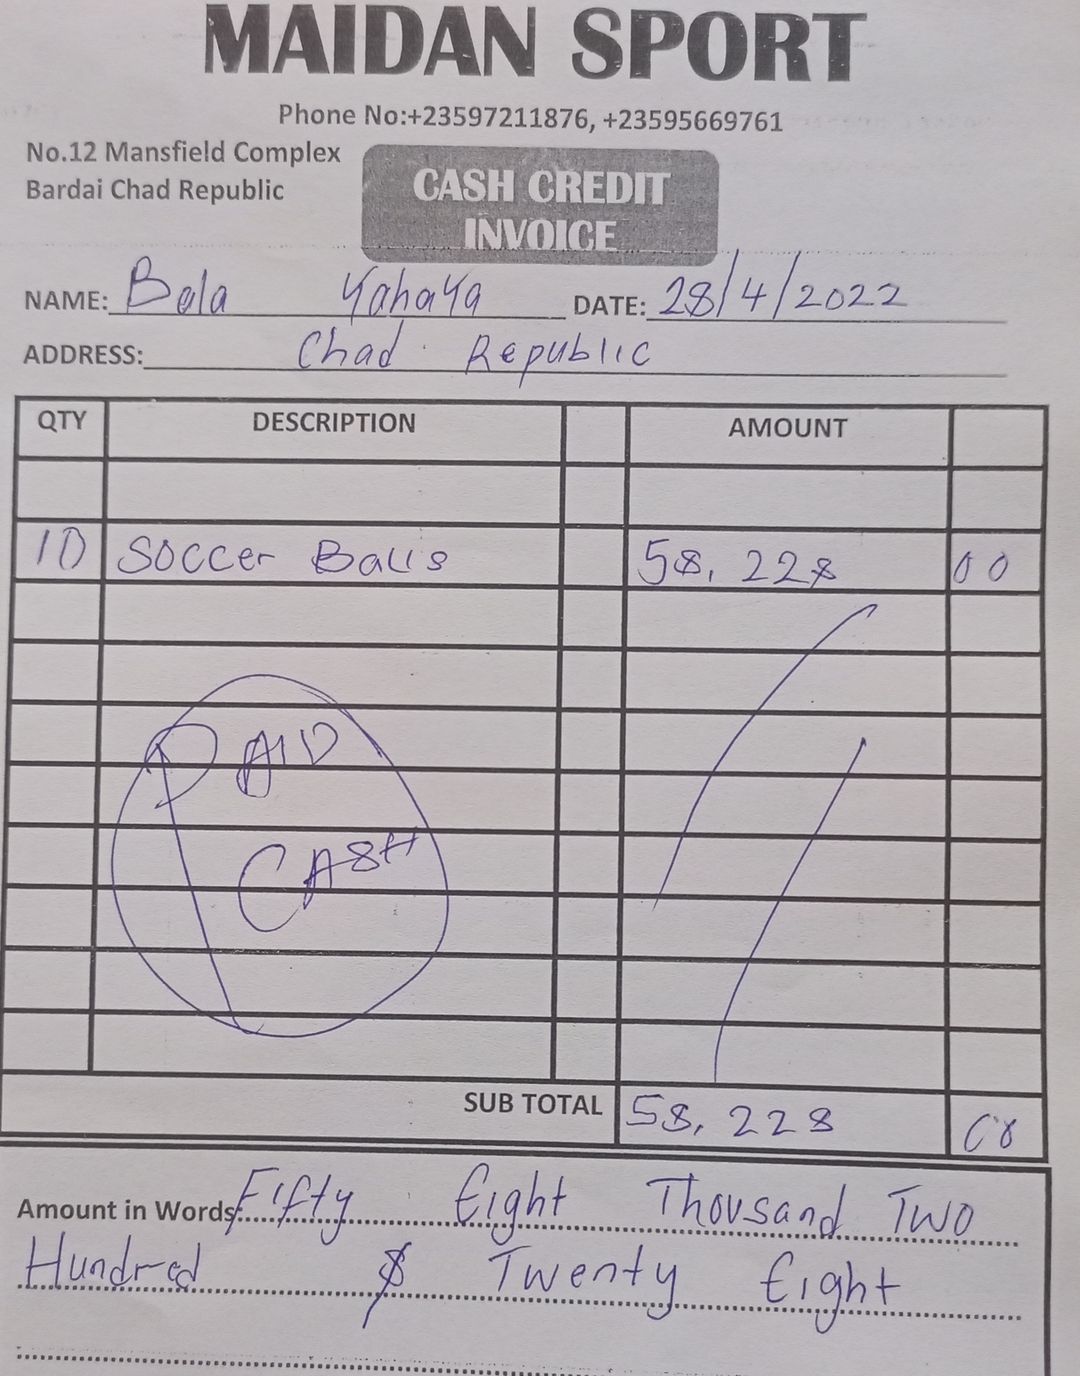 MAIDAN SPORT
Phone No:+23597211876, +23595669761
No.12 Mansfield Complex
Bardai Chad Republic
CASH CREDIT
INVOICE
NAME: Bala Yahaya DATE: 28/4/2022
ADDRESS: Chad Republic
QTY DESCRIPTION AMOUNT
10 Soccer Balls 58,228 00
PAID
CASH
SUB TOTAL 58,228 00
Amount in Words: Fifty Eight Thousand Two
Hundred & Twenty Eight